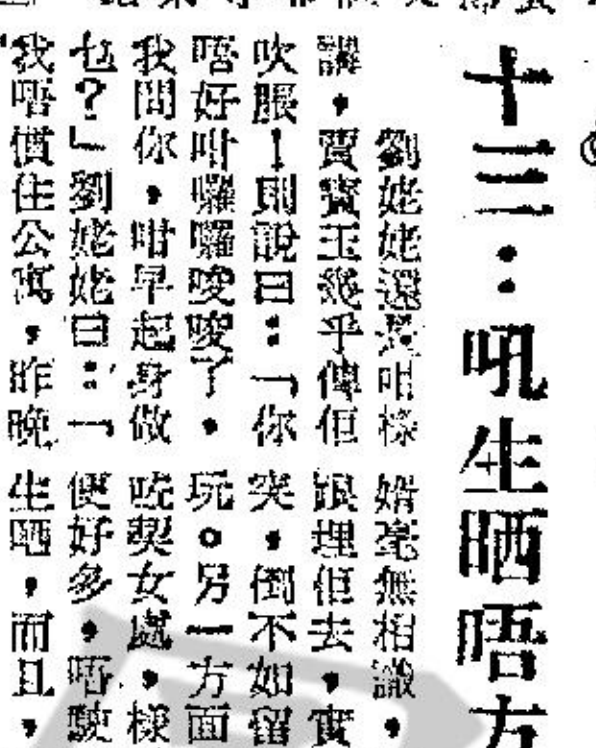 十三：吼生晒唔方
劉姥姥還是咁樣
講，賈寶玉幾乎俾佢
吹脹！則說曰：「你
唔好咁囉囉唆唆了，
我問你，咁早起身做
乜？」劉姥姥曰：「
我唔慣住公寓，昨晚
婿毫無相識，
跟埋佢去，實
突，倒不如留
玩。另一方面
吃契女處，樣
便好多，唔駛
生晒，而且，